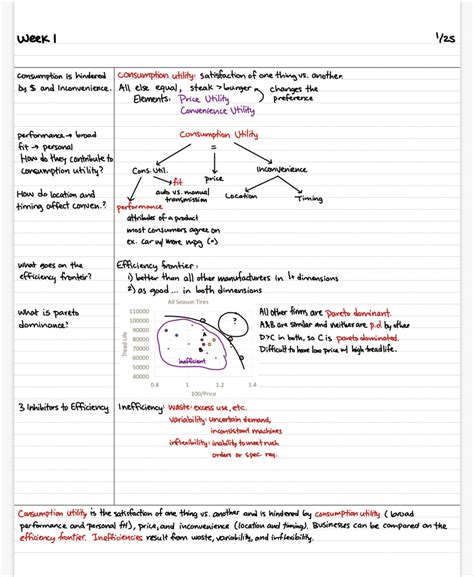 Week 1
1/25
consumption is hindered
by $ and inconvenience.
Consumption utility: satisfaction of one thing vs. another.
All else equal, steak > burger
changes the
preference
Elements: Price Utility
Convenience Utility
performance → broad
fit → personal
How do they contribute to
consumption utility?
Consumption Utility
=
Cons. Util.
price
Inconvenience
fit
auto vs. manual
transmission
Location
Timing
How do location and
timing affect conven.?
performance
attributes of a product
most consumers agree on
ex. car w/ more mpg (+)
what goes on the
efficiency frontier?
Efficiency frontier:
1) better than all other manufacturers in 1+ dimensions
2) as good ... in both dimensions
what is pareto
dominance?
All Season Tires
Tread Life
110000
100000
90000
80000
70000
60000
50000
40000
?
inefficient
0.8 1 1.2 1.4
100/Price
All other firms are pareto dominant.
A&B are similar and neither are p.d by other
D>C in both, so C is pareto dominated.
Difficult to have low price w/ high tread life.
3 Inhibitors to Efficiency
Inefficiency: waste: excess use, etc.
variability: uncertain demand,
inconsistent machines
inflexibility: inability to meet rush
orders or spec req.
Consumption utility is the satisfaction of one thing vs. another and is hindered by consumption utility (broad
performance and personal fit), price, and inconvenience (location and timing). Businesses can be compared on the
efficiency frontier. Inefficiencies result from waste, variability, and inflexibility.